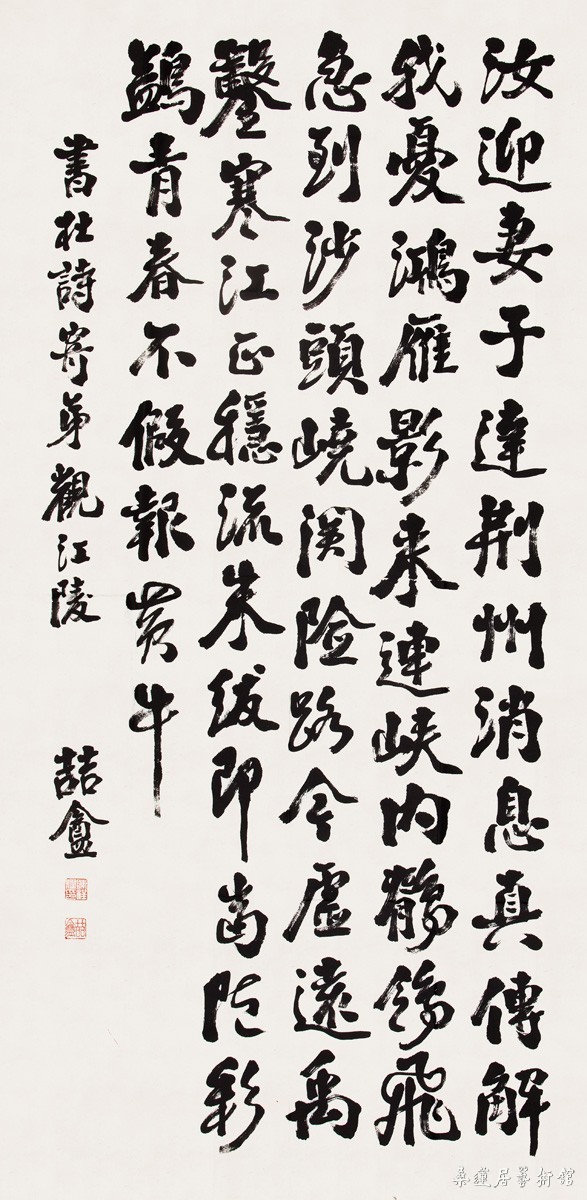 汝迎妻子達荆州消息真傳解
我憂鴻雁影来連峽内鶺鴒飛
急到沙頭嶢関險路今虛遠禹
鑿寒江正穩流朱紱即當随彩
鷁青春不假報黄牛
書杜詩寄弟觀江陵
喆盦
桑蓮居藝術館